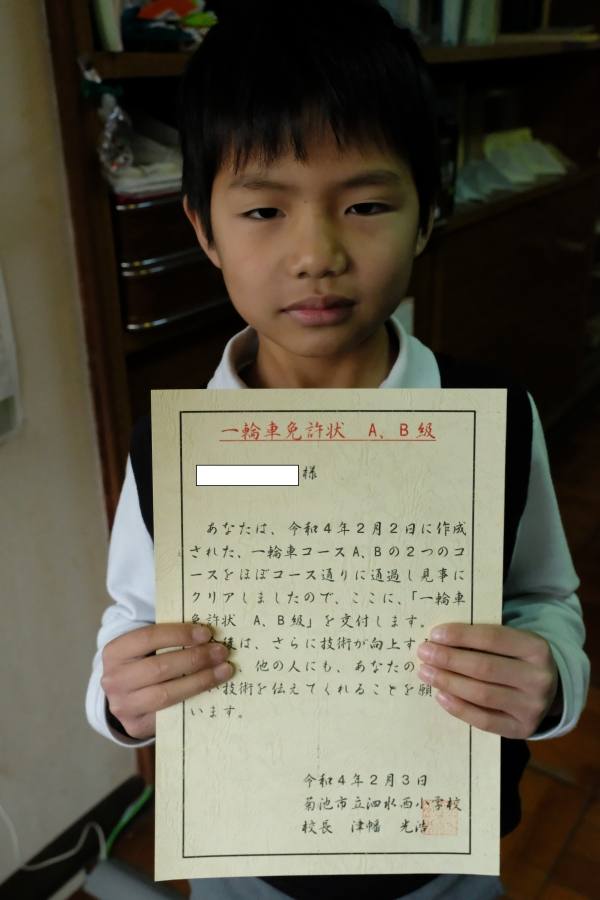 一輪車免許状 A、B級
様
あなたは、令和4年2月2日に作成
された、一輪車コースA、Bの2つのコ
ースをほぼコース通りに通過し見事に
クリアしましたので、ここに、「一輪車
免許状 A、B級」を交付します。
後は、さらに技術が向上す
、他の人にも、あなたの
い技術を伝えてくれることを願
います。
令和4年2月3日
菊池市立泗水西小学校
校長 津幡 光浩